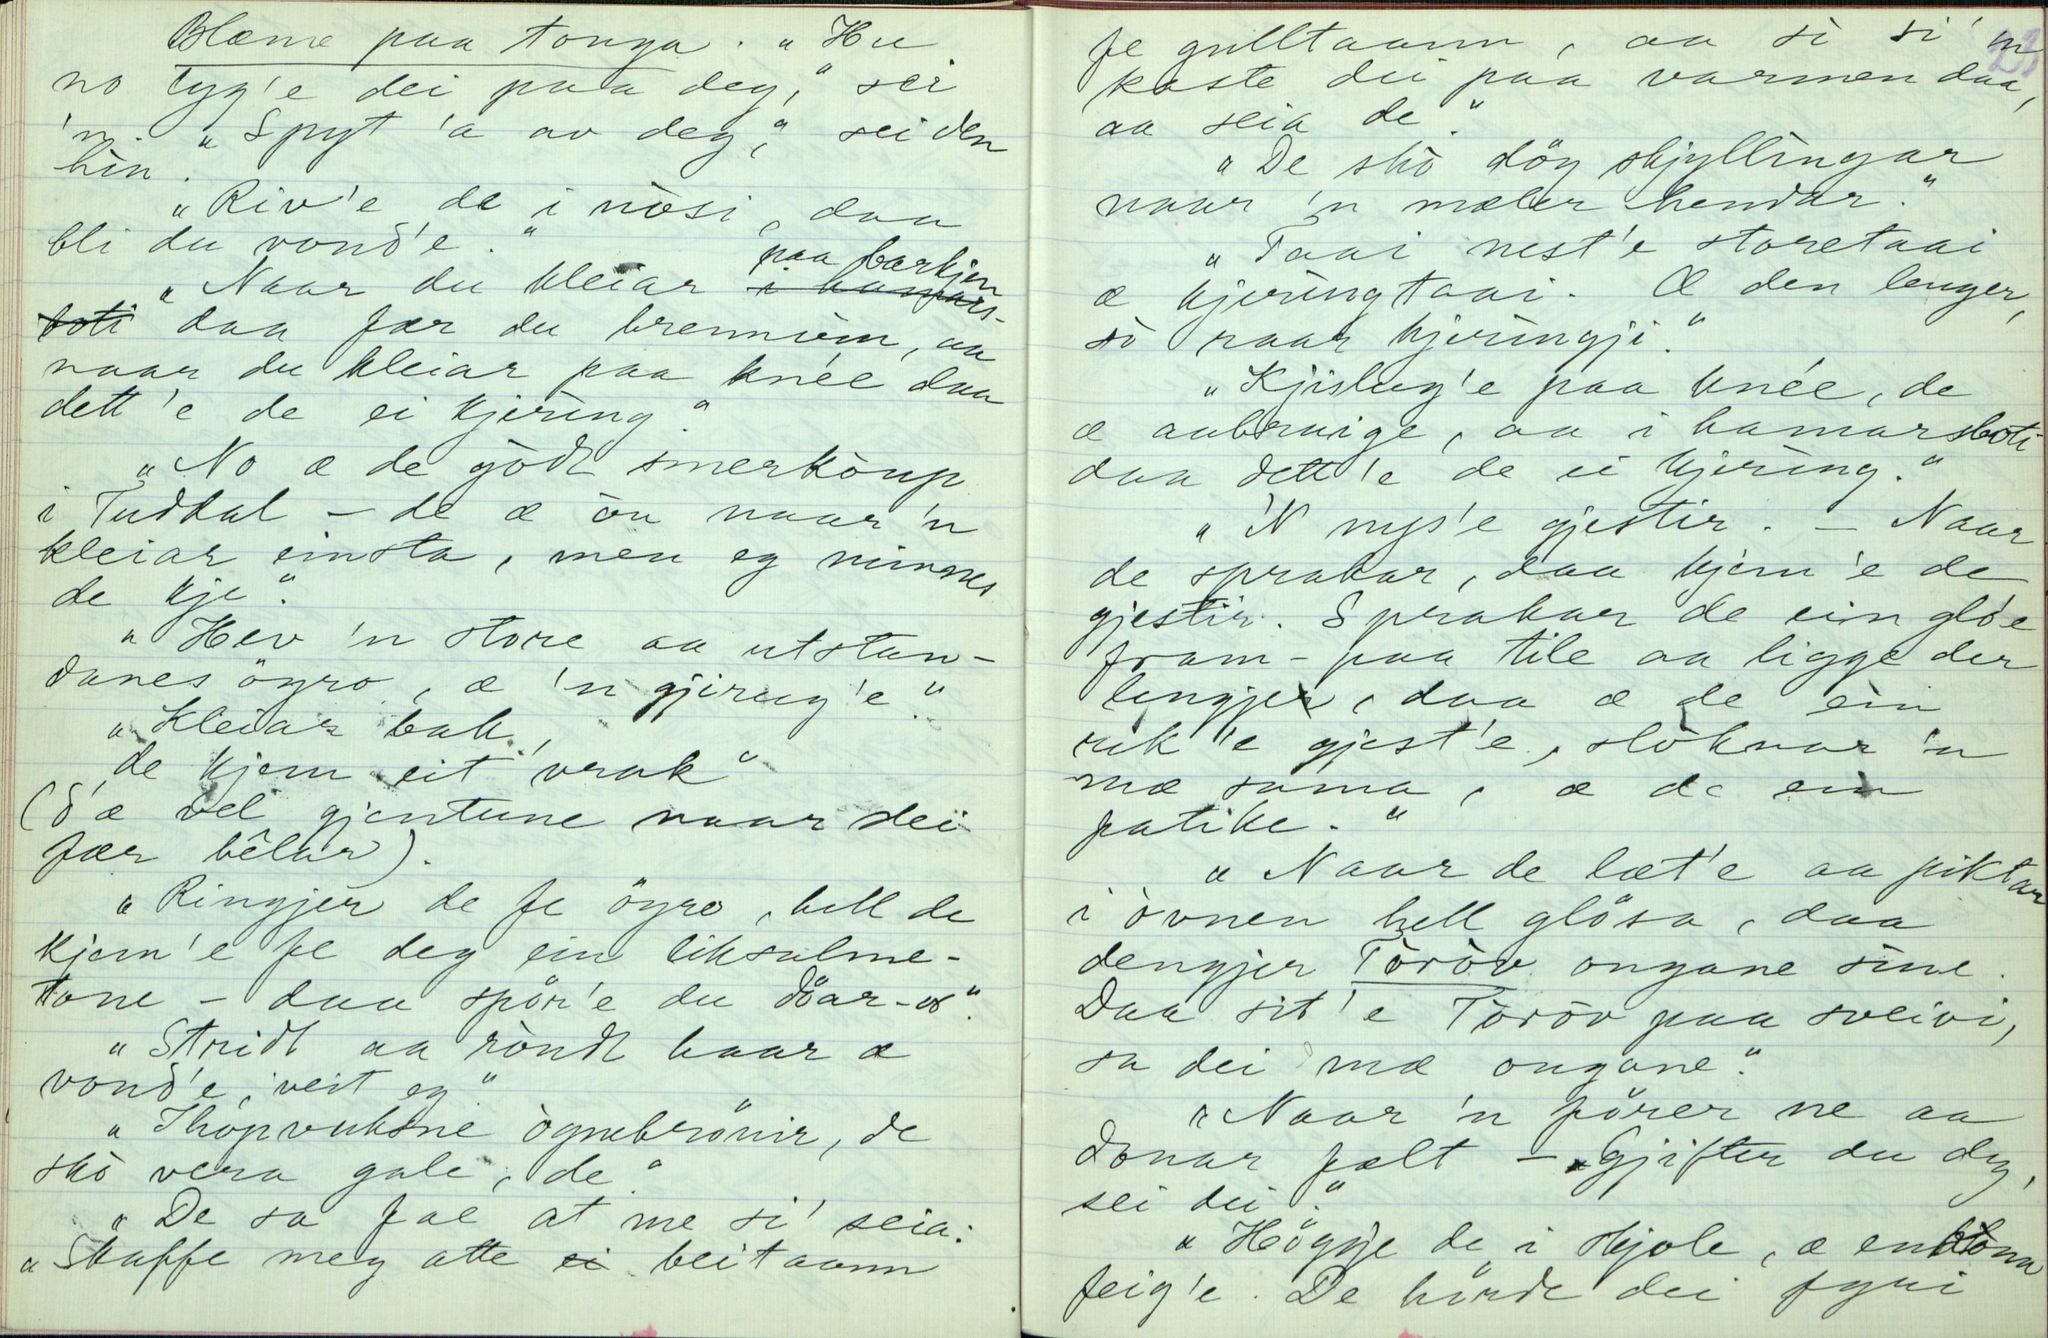 Blæme paa tonga. "Hu
no lyg'e dei paa deg," sei
'n. "Spyt 'a av deg," sei den
hin.
"Riv'e de i nòsi, daa
bli du vond'e."
"Naar du kleiar i hamars- paa barkjen
boti daa fær du brennvin, aa
naar du kleiar paa knée daa
dett'e de ei kjering."
"No æ de gòdt smerkòup
i Tuddal – de æ òu naar 'n
kleiar einsta, men eg minnes
de kje".
"Hev 'n store aa utstan-
danes ögro, æ 'n gjirug'e."
"Kleiar bak,
de kjem eit vrak"
(d'æ vel gjentune naar dei
fær bêlar).
"Ringjer de fe öyro, hell de
kjem'e fe deg ein liksalme-
tone – daa spör'e du döar-os".
"Stridt aa ròndt haar æ
vond'e, veit eg"
"Ihópvuksne ògnebrönir, de
skò vera gale, de"
"De sa fae at me si' seia:
"Skaffe meg atte ei beitaann
fe gulltaann, aa sò si' 'n
kaste dei paa varmen daa,
aa seia de".
"De skò döy skjyllingar
naar 'n mæler hendar."
"Taai nest'e storetaai
æ kjeringtaai. Æ den lenger,
sò raar kjeringji."
"Kjislug'e paa knée, de
æ aabruige, aa i hamarsboti
daa dett'e de ei kjering."
"'N nys'e gjestir. – Naar
de sprakar, daa kjem'e de
gjestir. Sprakar de ein glo'e
fram-paa tile aa ligge der
lengjer, daa æ de ein
rik'e gjest'e, slöknar 'n
mæ sama, æ de ein
fatike."
"Naar de læt'e aa piktar
i òvnen hell glösa, daa
dengjer Tòròv ongane sine.
Daa sit'e Tòròv paa sveivi,
sa dei mæ ongane".
"Naar 'n förer ne aa
donar fælt – "Gjifter du deg,
sei dei".
"Höggje de i skjole, æ en
feig'e. De hörde dei fyni